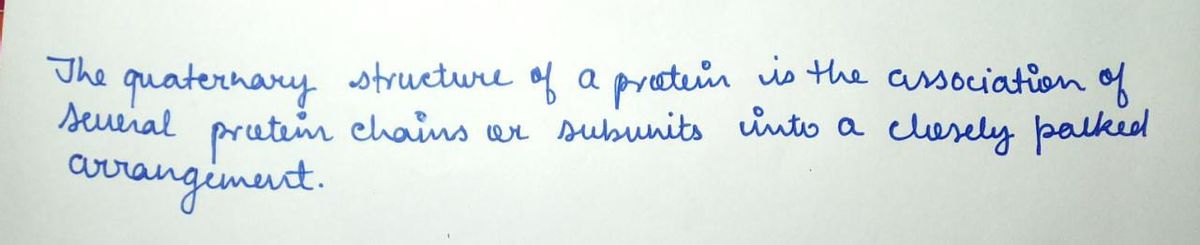 The quaternary structure of a protein is the association of
several protein chains or subunits into a closely packed
arrangement.